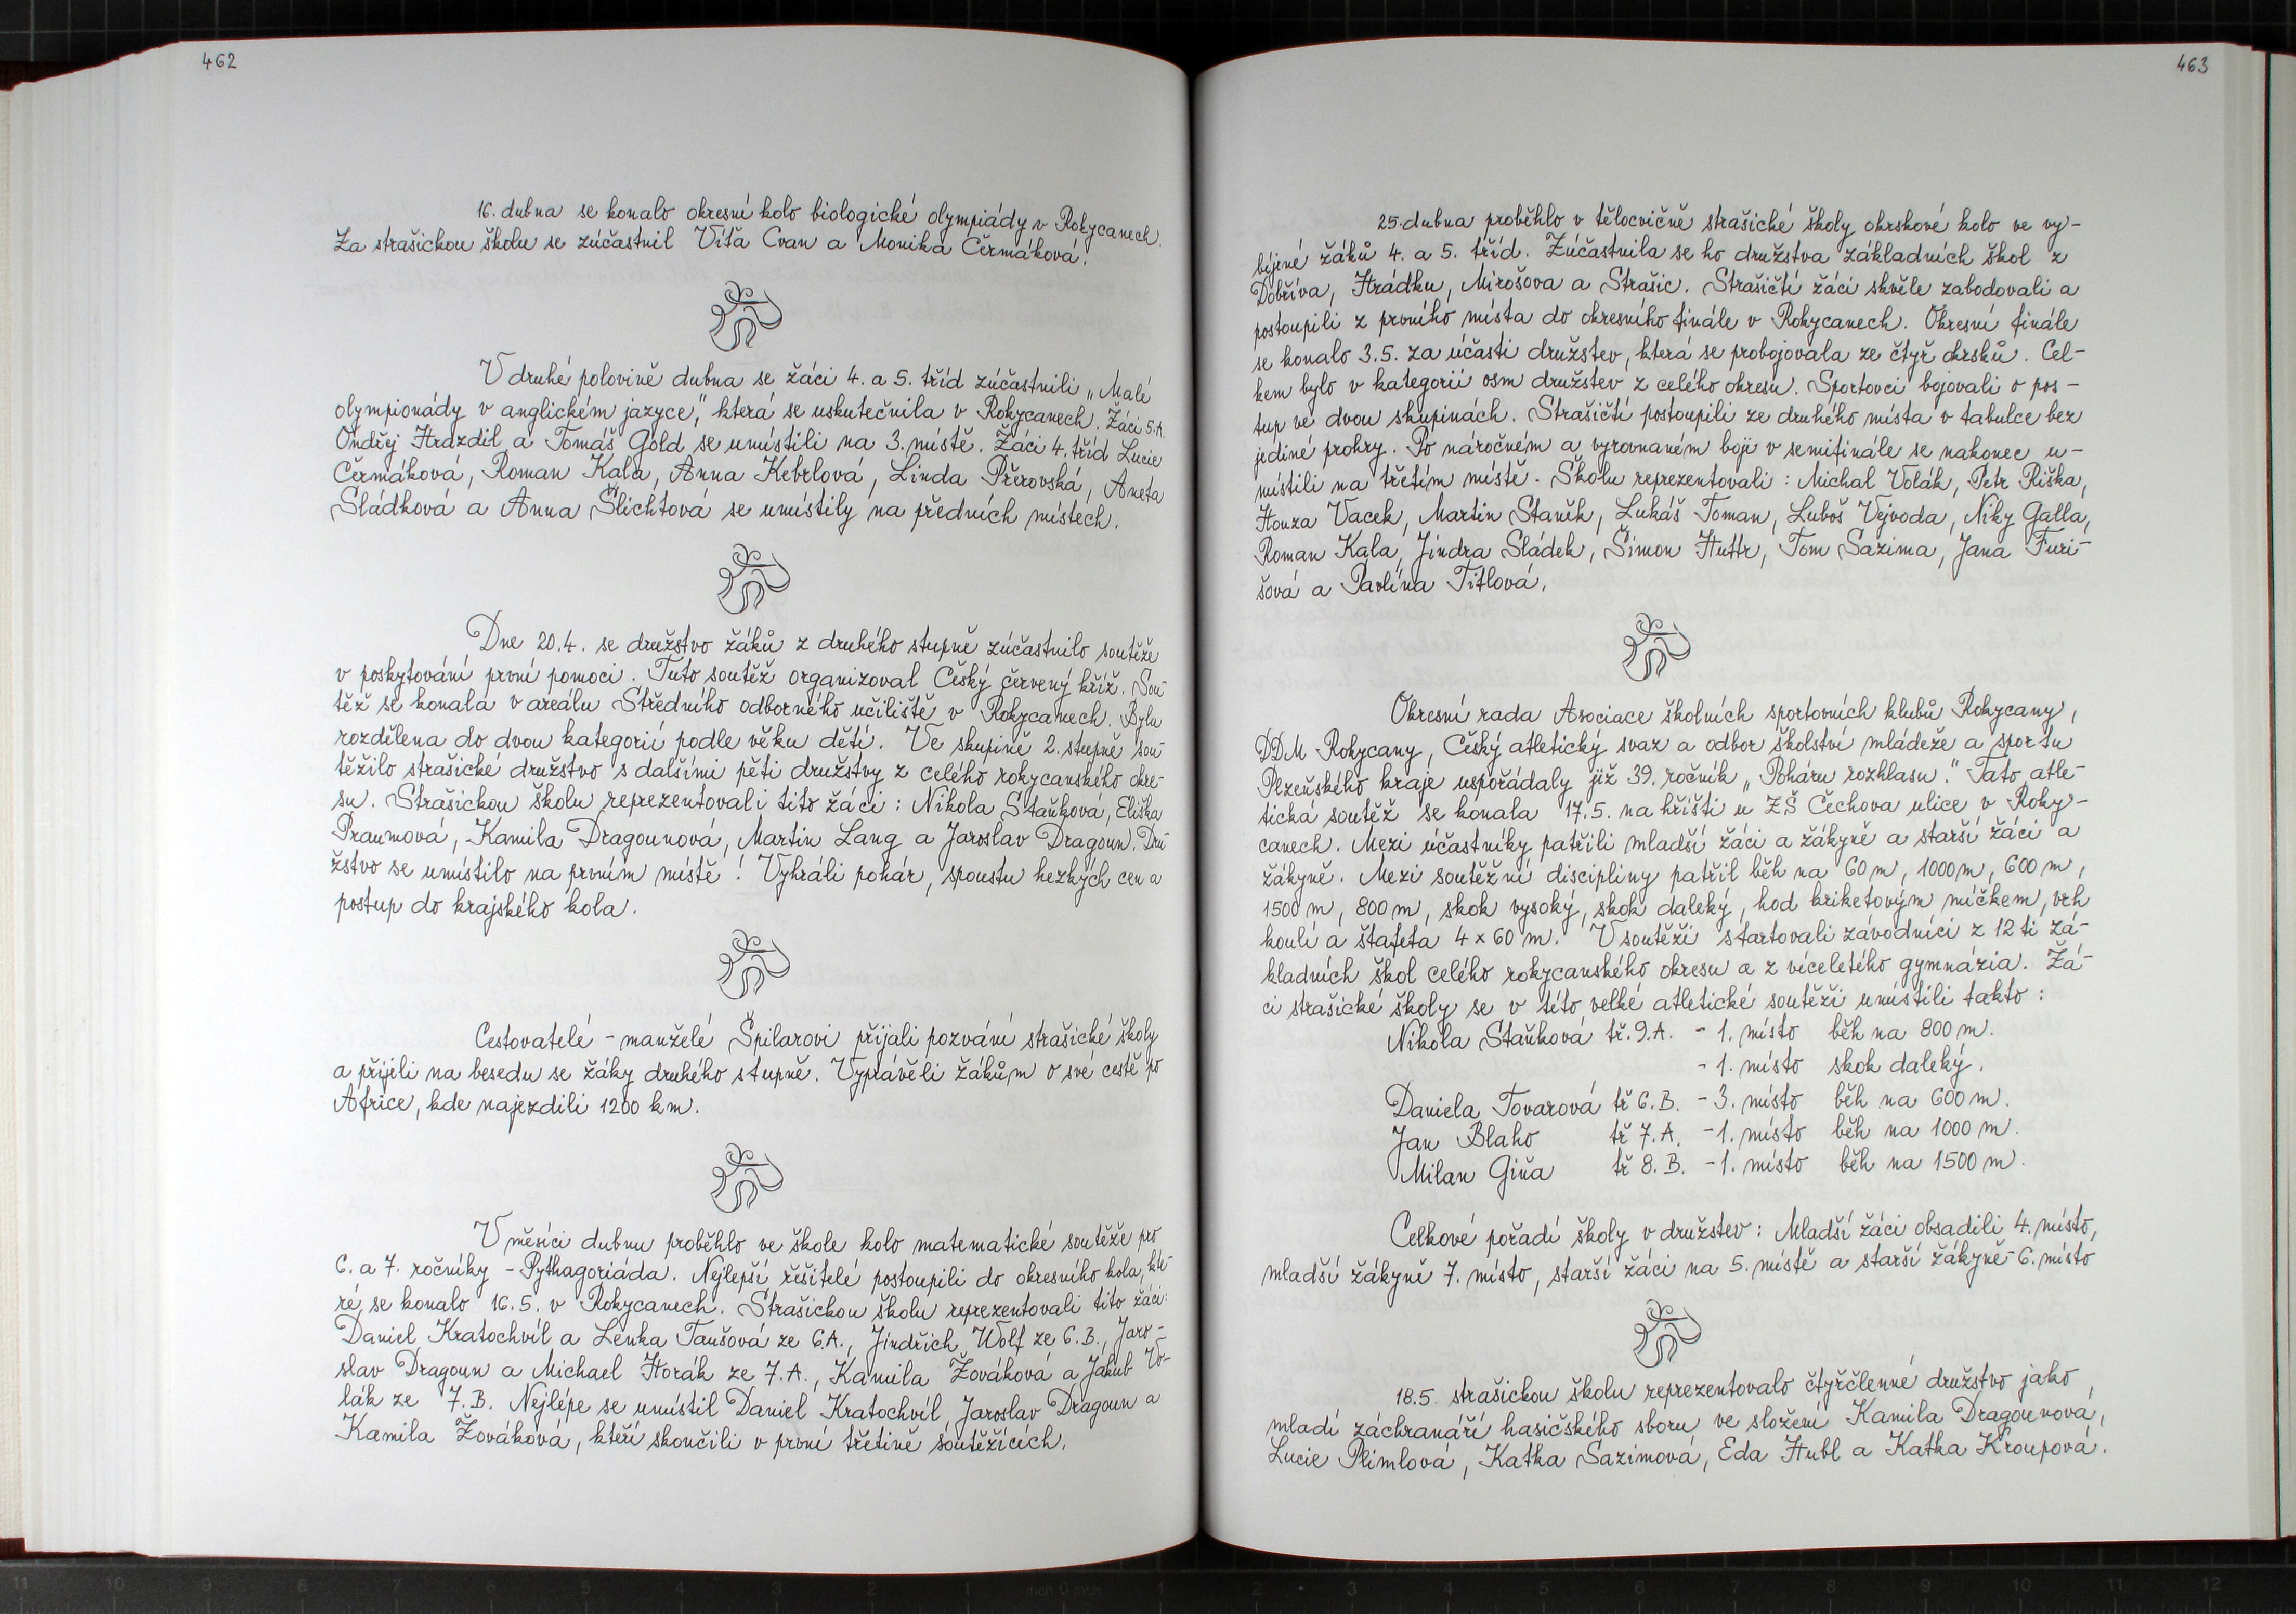 462
16. dubna se konalo okresní kolo biologické olympiády v Rokycanech.
Za strašickou školu se zúčastnil Víťa Cvan a Monika Čermáková.
V druhé polovině dubna se žáci 4. a 5. tříd zúčastnili „Malé
olympionády v anglickém jazyce“, která se uskutečnila v Rokycanech. Žáci 5.A.
Ondřej Hrazdil a Tomáš Gold se umístili na 3. místě. Žáci 4. tříd Lucie
Čermáková, Roman Kala, Anna Kebrlová, Linda Přerovská, Aneta
Sládková a Anna Šlichtová se umístily na předních místech.
Dne 20.4. se družstvo žáků z druhého stupně zúčastnilo soutěže
v poskytování první pomoci. Tuto soutěž organizoval Český červený kříž. Sou-
těž se konala v areálu Středního odborného učiliště v Rokycanech. Byla
rozdělena do dvou kategorií podle věku dětí. Ve skupině 2. stupně sou-
těžilo strašické družstvo s dalšími pěti družstvy z celého rokycanského okre-
su. Strašickou školu reprezentovali tito žáci: Nikola Staňková, Eliška
Praumová, Kamila Dragounová, Martin Lang a Jaroslav Dragoun. Dru-
žstvo se umístilo na prvním místě! Vyhráli pohár, spoustu hezkých cen a
postup do krajského kola.
Cestovatelé - manželé Špilarovi přijali pozvání strašické školy
a přijeli na besedu se žáky druhého stupně. Vyprávěli žákům o své cestě po
Africe, kde najezdili 1200 km.
V měsíci dubnu proběhlo ve škole kolo matematické soutěže pro
6. a 7. ročníky - Pythagoriáda. Nejlepší řešitelé postoupili do okresního kola, kte-
ré se konalo 16.5. v Rokycanech. Strašickou školu reprezentovali tito žáci:
Daniel Kratochvíl a Lenka Taušová ze 6.A., Jindřich Wolf ze 6.B., Jaro-
slav Dragoun a Michael Horák ze 7.A., Kamila Žováková a Jakub Vo-
lák ze 7.B. Nejlépe se umístil Daniel Kratochvíl, Jaroslav Dragoun a
Kamila Žováková, kteří skončili v první třetině soutěžících.
463
25. dubna proběhlo v tělocvičně strašické školy okrskové kolo ve vy-
bíjené žáků 4. a 5. tříd. Zúčastnila se ho družstva základních škol z
Dobříva, Hrádku, Mirošova a Strašic. Strašičtí žáci skvěle zabodovali a
postoupili z prvního místa do okresního finále v Rokycanech. Okresní finále
se konalo 3.5. za účasti družstev, která se probojovala ze čtyř okrsků. Cel-
kem bylo v kategorii osm družstev z celého okresu. Sportovci bojovali o pos-
tup ve dvou skupinách. Strašičtí postoupili ze druhého místa v tabulce bez
jediné prohry. Po náročném a vyrovnaném boji v semifinále se nakonec u-
místili na třetím místě. Školu reprezentovali: Michal Volák, Petr Riška,
Honza Vacek, Martin Staněk, Lukáš Toman, Luboš Vejvoda, Niky Galla,
Roman Kala, Jindra Sládek, Šimon Huttr, Tom Sazima, Jana Furi-
šová a Pavlína Titlová.
Okresní rada Asociace školních sportovních klubů Rokycany,
DDM Rokycany, Český atletický svaz a odbor školství mládeže a sportu
Plzeňského kraje uspořádaly již 39. ročník „Poháru rozhlasu“. Tato atle-
tická soutěž se konala 17.5. na hřišti u ZŠ Čechova ulice v Roky-
canech. Mezi účastníky patřili mladší žáci a žákyně a starší žáci a
žákyně. Mezi soutěžní discipliny patřil běh na 60 m, 1000 m, 600 m,
1500 m, 800 m, skok vysoký, skok daleký, hod kriketovým míčkem, vrh
koulí a štafeta 4 x 60 m. V soutěži startovali závodníci z 12 ti zá-
kladních škol celého rokycanského okresu a z víceletého gymnázia. Žá-
ci strašické školy se v této velké atletické soutěži umístili takto:
Nikola Staňková tř. 9.A. - 1. místo běh na 800 m.
- 1. místo skok daleký.
Daniela Tovarová tř 6.B. - 3. místo běh na 600 m.
Jan Blaho tř 7.A. - 1. místo běh na 1000 m.
Milan Giňa tř 8.B. - 1. místo běh na 1500 m.
Celkové pořadí školy v družstev: Mladší žáci obsadili 4. místo,
mladší žákyně 7. místo, starší žáci na 5. místě a starší žákyně - 6. místo
18.5. strašickou školu reprezentovalo čtyřčlenné družstvo jako
mladí záchranáři hasičského sboru ve složení Kamila Dragounová,
Lucie Plimlová, Katka Sazimová, Eda Hubl a Katka Kroupová.
11 10 9 8 7 6 5 4 3 2 1 inch 0 inch 1 2 3 4 5 6 7 8 9 10 11 12